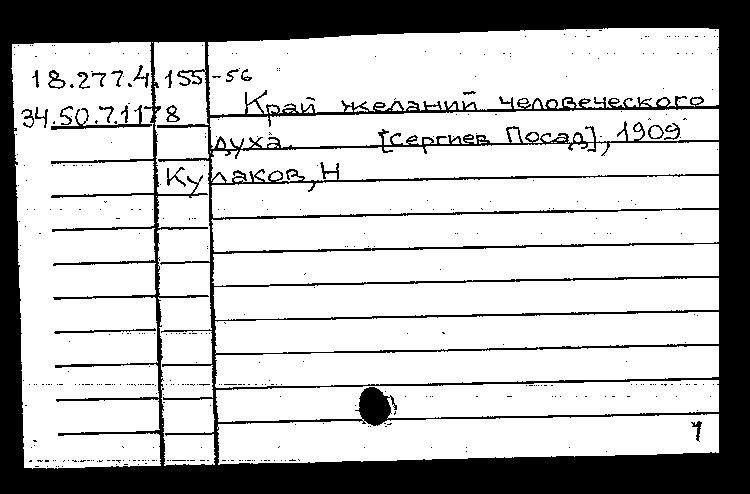 18.277.4.155-56
34.50.7.1178 Край желаний человеческого
духа. [Сергиев Посад], 1909
Кулаков, Н
1